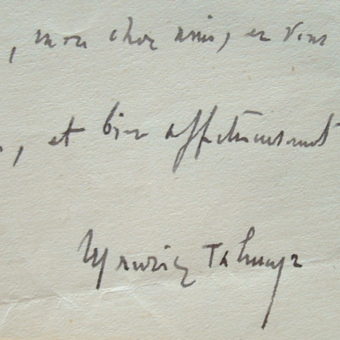 , mon cher ami, en vous
, et bien affectueusement
Maurice